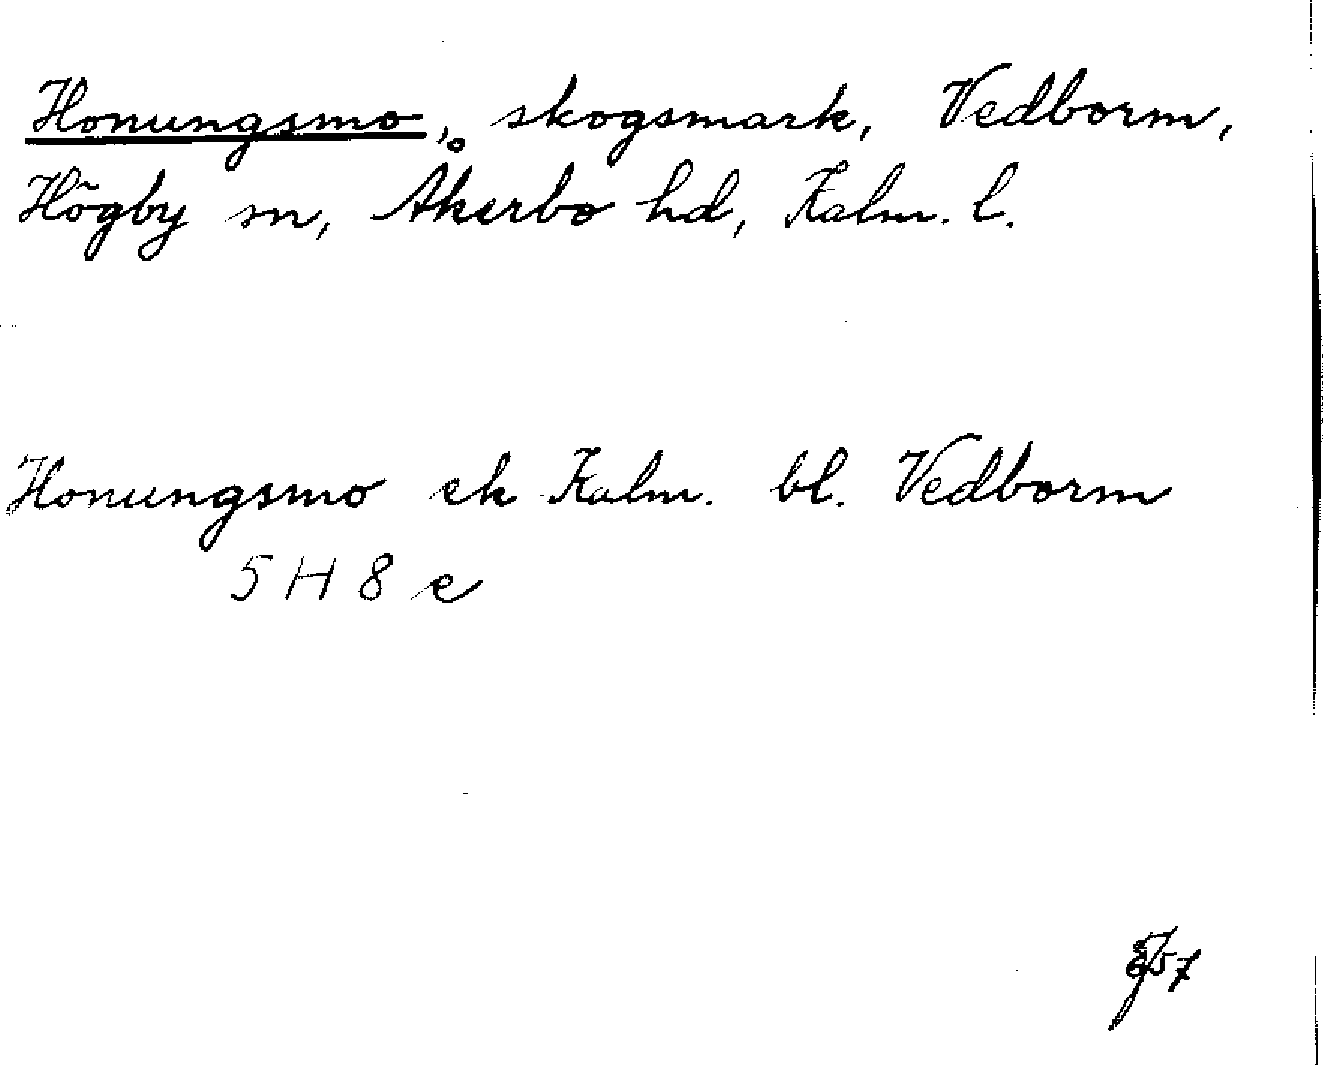 Honungsmo, skogsmark, Vedborm,
Högby sn, Åkerbo hd, Kalm. l.
Honungsmo ek Kalm. bl. Vedborm
5 H 8 e